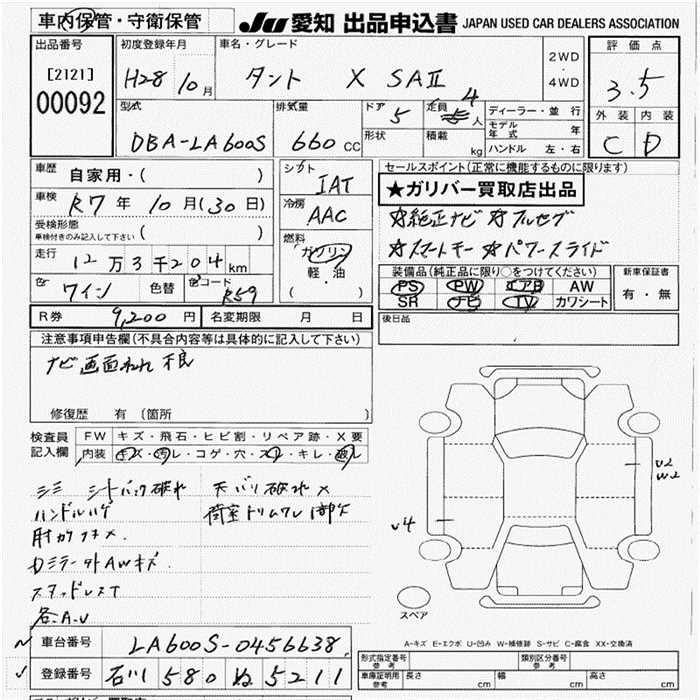 車内保管・守衛保管
JU 愛知 出品申込書 JAPAN USED CAR DEALERS ASSOCIATION
出品番号
[2121]
00092
初度登録年月
H28 10 月
車名・グレード
タント X SAⅡ
2WD
・
4WD
評価点
3.5
外装 内装
C D
型式
DBA-LA600S
排気量
660 CC
ドア 5
形状
定員 4 人
積載 kg
ディーラー・並行
モデル年式 年
ハンドル 左・右
車歴 自家用・( )
車検 R7 年 10 月(30 日)
受検形態
車検付きのみ記入して下さい ( )
走行 12 万 3 千 204 km
色 ワイン 色替 色コード R59
シフト IAT
冷房 AAC
燃料
ガソリン
軽・油
( )
セールスポイント(正常に機能するものに限ります)
★ガリバー買取店出品
☆純正ナビ ☆フルセグ
☆スマートキー ☆パワースライド
装備品(純正品に限り○をつけてください)
PS PW エアB AW
SR ナビ TV カワシート
新車保証書
有・無
R券 9,200 円 名変期限 月 日
後日品
注意事項申告欄(不具合内容等は具体的に記入して下さい)
ナビ画面われ 不良
修復歴 有 〔箇所 〕
検査員
記入欄
FW キズ・飛石・ヒビ割・リペア跡・X要
内装 キズ・汚レ・コゲ・穴・スレ・キレ・破レ
シミ シートバック破れ 天バリ破れ×
ハンドルハゲ 荷室トリムワレ
スタッドレスT
各.A.U
U2
W2
U4
スペア
A-キズ E-エクボ U-凹み W-補修跡 S-サビ C-腐食 XX-交換済
車台番号 LA600S-0456638
登録番号 石川 580 ぬ 5211
形式指定番号 参考
類別区分番号 参考
車庫証明用 参考 長さ cm 幅 cm 高さ cm